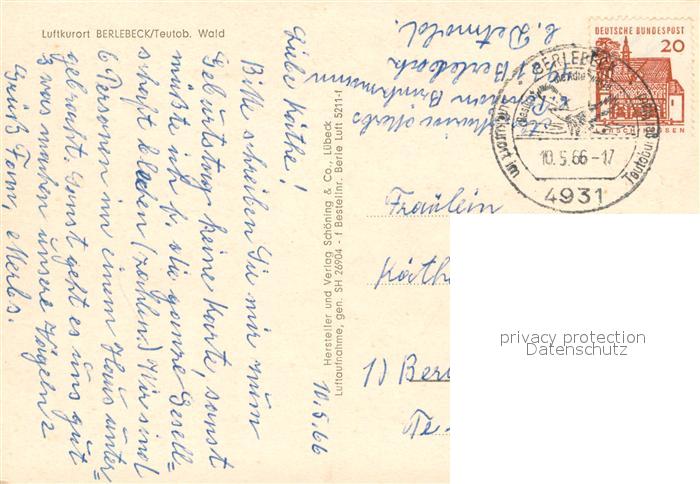 Luftkurort BERLEBECK/Teutob. Wald
Liebe Käthe!
Bitte schreiben Sie mir zum
Geburtstag keine Karte, sonst
müßte ich f. die ganze Gesell=
schaft blechen (zahlen.) Wir sind
6 Personen in einem Haus unter=
gebracht. Sonst geht es uns gut
was machen unsere Vögeln?
Gruß Fam. Meibs.
10.5.66
Hersteller und Verlag Schöning & Co., Lübeck
Luftaufnahme, gen. SH 26904 - f Bestellnr. Berle Luft 5211-f
Meibs
Brinkmann
Berlebeck
b. Detmold.
DEUTSCHE BUNDESPOST
20
BERLEBECK
10.5.66-17
4931
Luftkurort im
Teutoburger
Fräulein
Käth
1) Berl
Te
privacy protection
Datenschutz